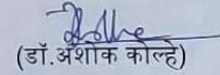 (डॉ.अशोक कोल्हे)